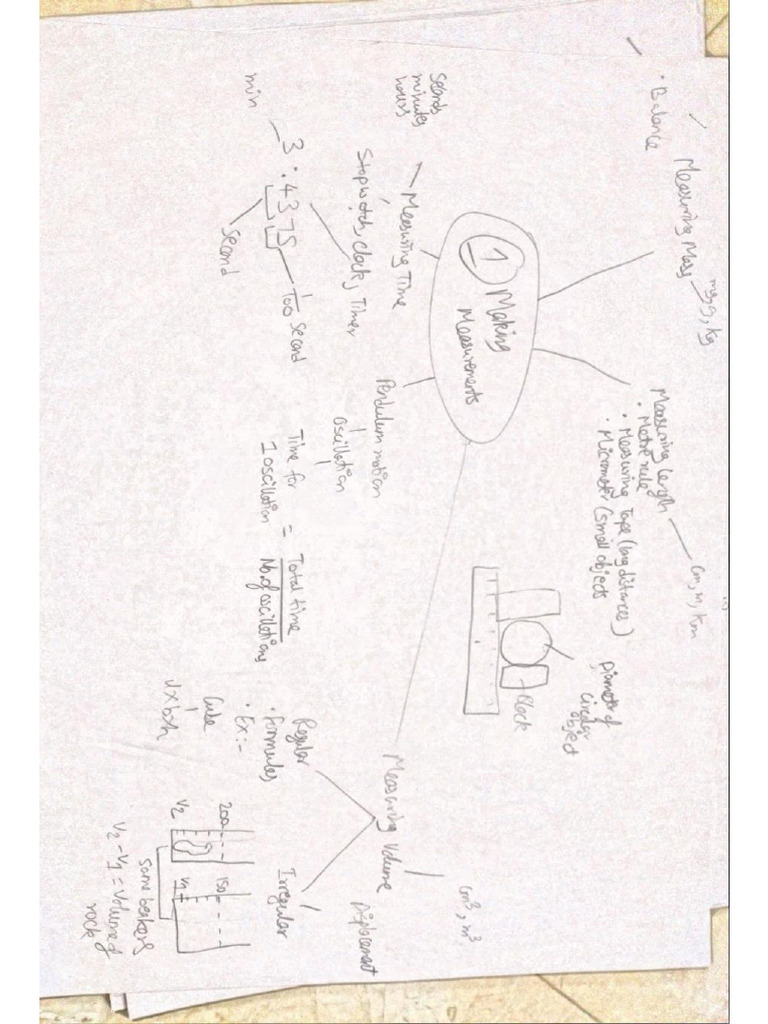 1 Making
Measurements
Measuring Mass
mg, g, kg
• Balance
Measuring length
• Metre rule
• Measuring Tape (long distances)
• Micrometer (small objects
cm, m, km
Diameter of
circular
object
Block
Measuring Time
Seconds
minutes
hours
Stopwatch, clock, Timer
3 : 43 75
min
second
1/100 second
Pendulum motion
oscillation
Time for
1 oscillation = Total time
No. of oscillations
Measuring Volume
cm³, m³
Regular
• Formulas
• Ex:-
Cube
l×b×h
Irregular
Displacement
200
V2
150
V1
same beakers
V2 - V1 = Volume of
rock